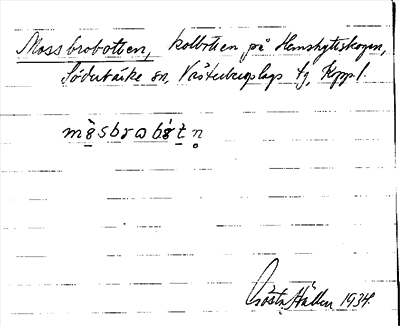 Mossbrobotten, kolbotten på Hemshyttskogen,
Söderbärke sn, Västerbergslags tg, Kppl.
mòsbrωbót̠n̥
Gösta Hallin 1934.